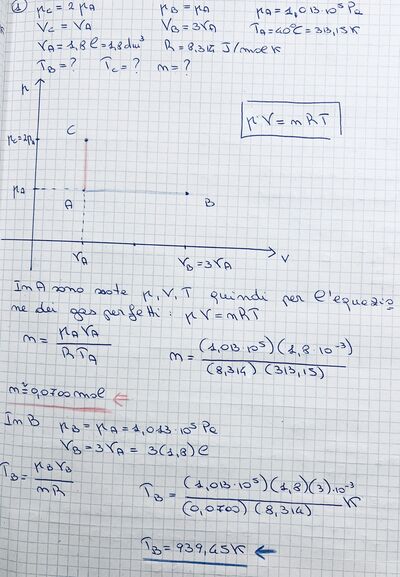 ① pC = 2 pA   pB = pA   pA = 1,013·10⁵ Pa
VC = VA   VB = 3VA   TA = 40°C = 313,15K
VA = 1,8 l = 1,8 dm³   R = 8,314 J/mol K
TB = ?   TC = ?   n = ?
p
pV = nRT
C
pC = 2pA
pA
A
B
VA
VB = 3VA
V
In A sono note p, V, T quindi per l'equazio
ne dei gas perfetti: pV = nRT
n = pA VA / R TA   n = (1,013·10⁵)(1,8·10⁻³) / (8,314)(313,15)
n ≅ 0,0700 mol ⇐
In B   pB = pA = 1,013·10⁵ Pa
VB = 3VA = 3(1,8) l
TB = pB VB / nR   TB = (1,013·10⁵)(1,8)(3)·10⁻³ / (0,0700)(8,314) K
TB = 939,45 K ←